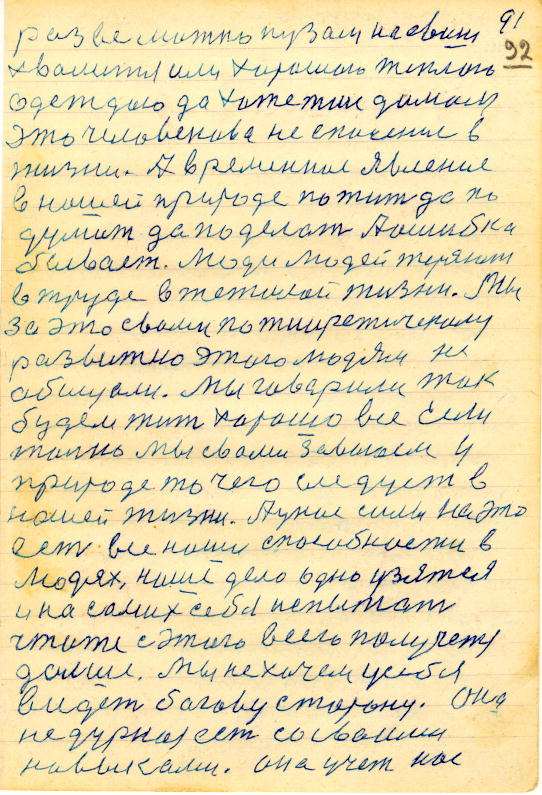 91
92
разве можно пузам на свини
хвалится или хорошою теплою
одеждою да хожежми домом
это человекова не спасение в
жизни. А временное явление
в нашей природе пожит да по
думат да поделат Аошибка
бывает. Люди людей теряют
в труде в тежолой жизни. Мы
за это своми по тиоретическому
развитию этого людям не
обищали. Мы говарили так
будем жит хорошо все Если
толко мы свами Заваюем у
природе то чего следует в
нашей жизни. А у нас силы на это
ест все наши способности в
людях, наше дело одно узятся
и на самих себя испытат
чтоже с этого всего получется
далше. Мы нехочем усебя
видет богову сторону. она
не дурная ест со своими
навыками. она учет нас